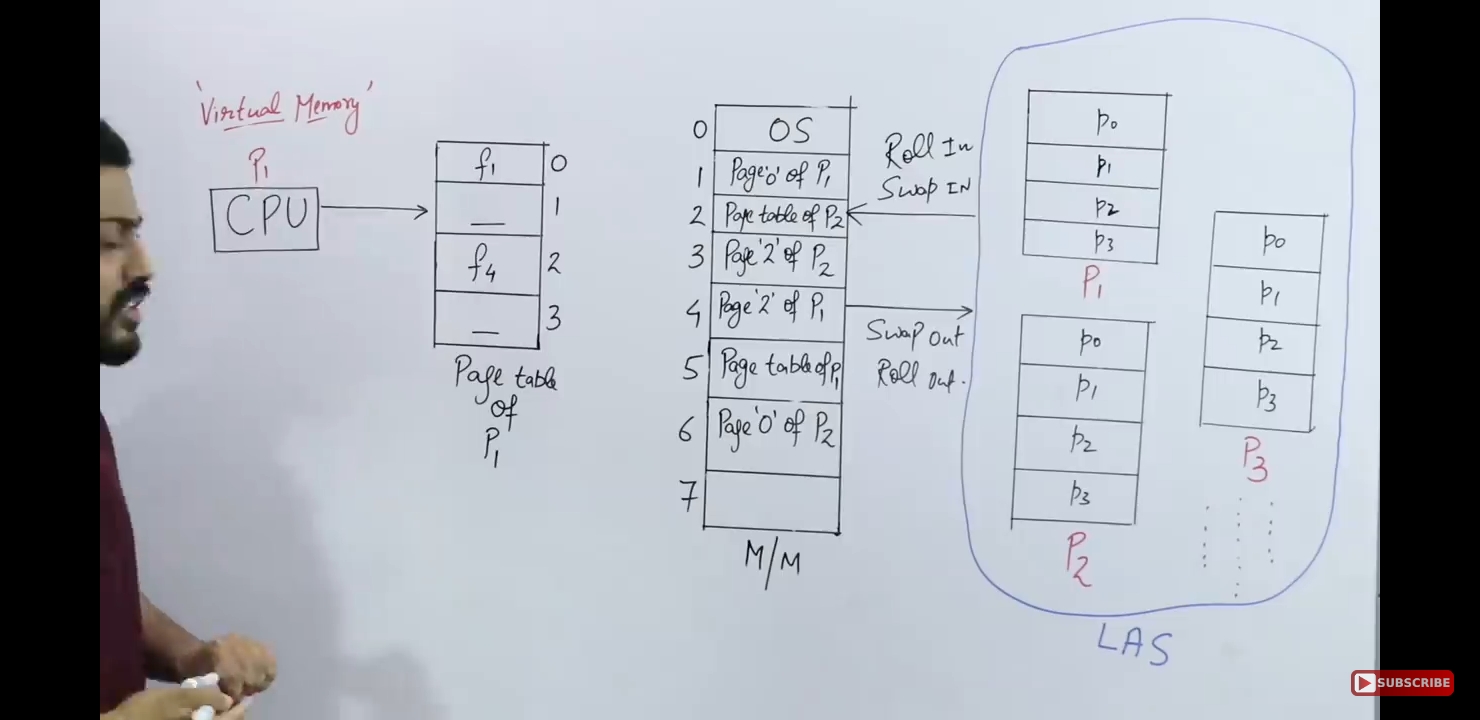 'Virtual Memory'
P1
CPU
f1 0
_ 1
f4 2
_ 3
Page table
of
P1
0 OS
1 Page '0' of P1
2 Page table of P2
3 Page '2' of P2
4 Page '2' of P1
5 Page table of P1
6 Page '0' of P2
7
M/M
Roll In
Swap IN
Swap out
Roll out.
p0
p1
p2
p3
P1
p0
p1
p2
p3
P2
p0
p1
p2
p3
P3
LAS
SUBSCRIBE